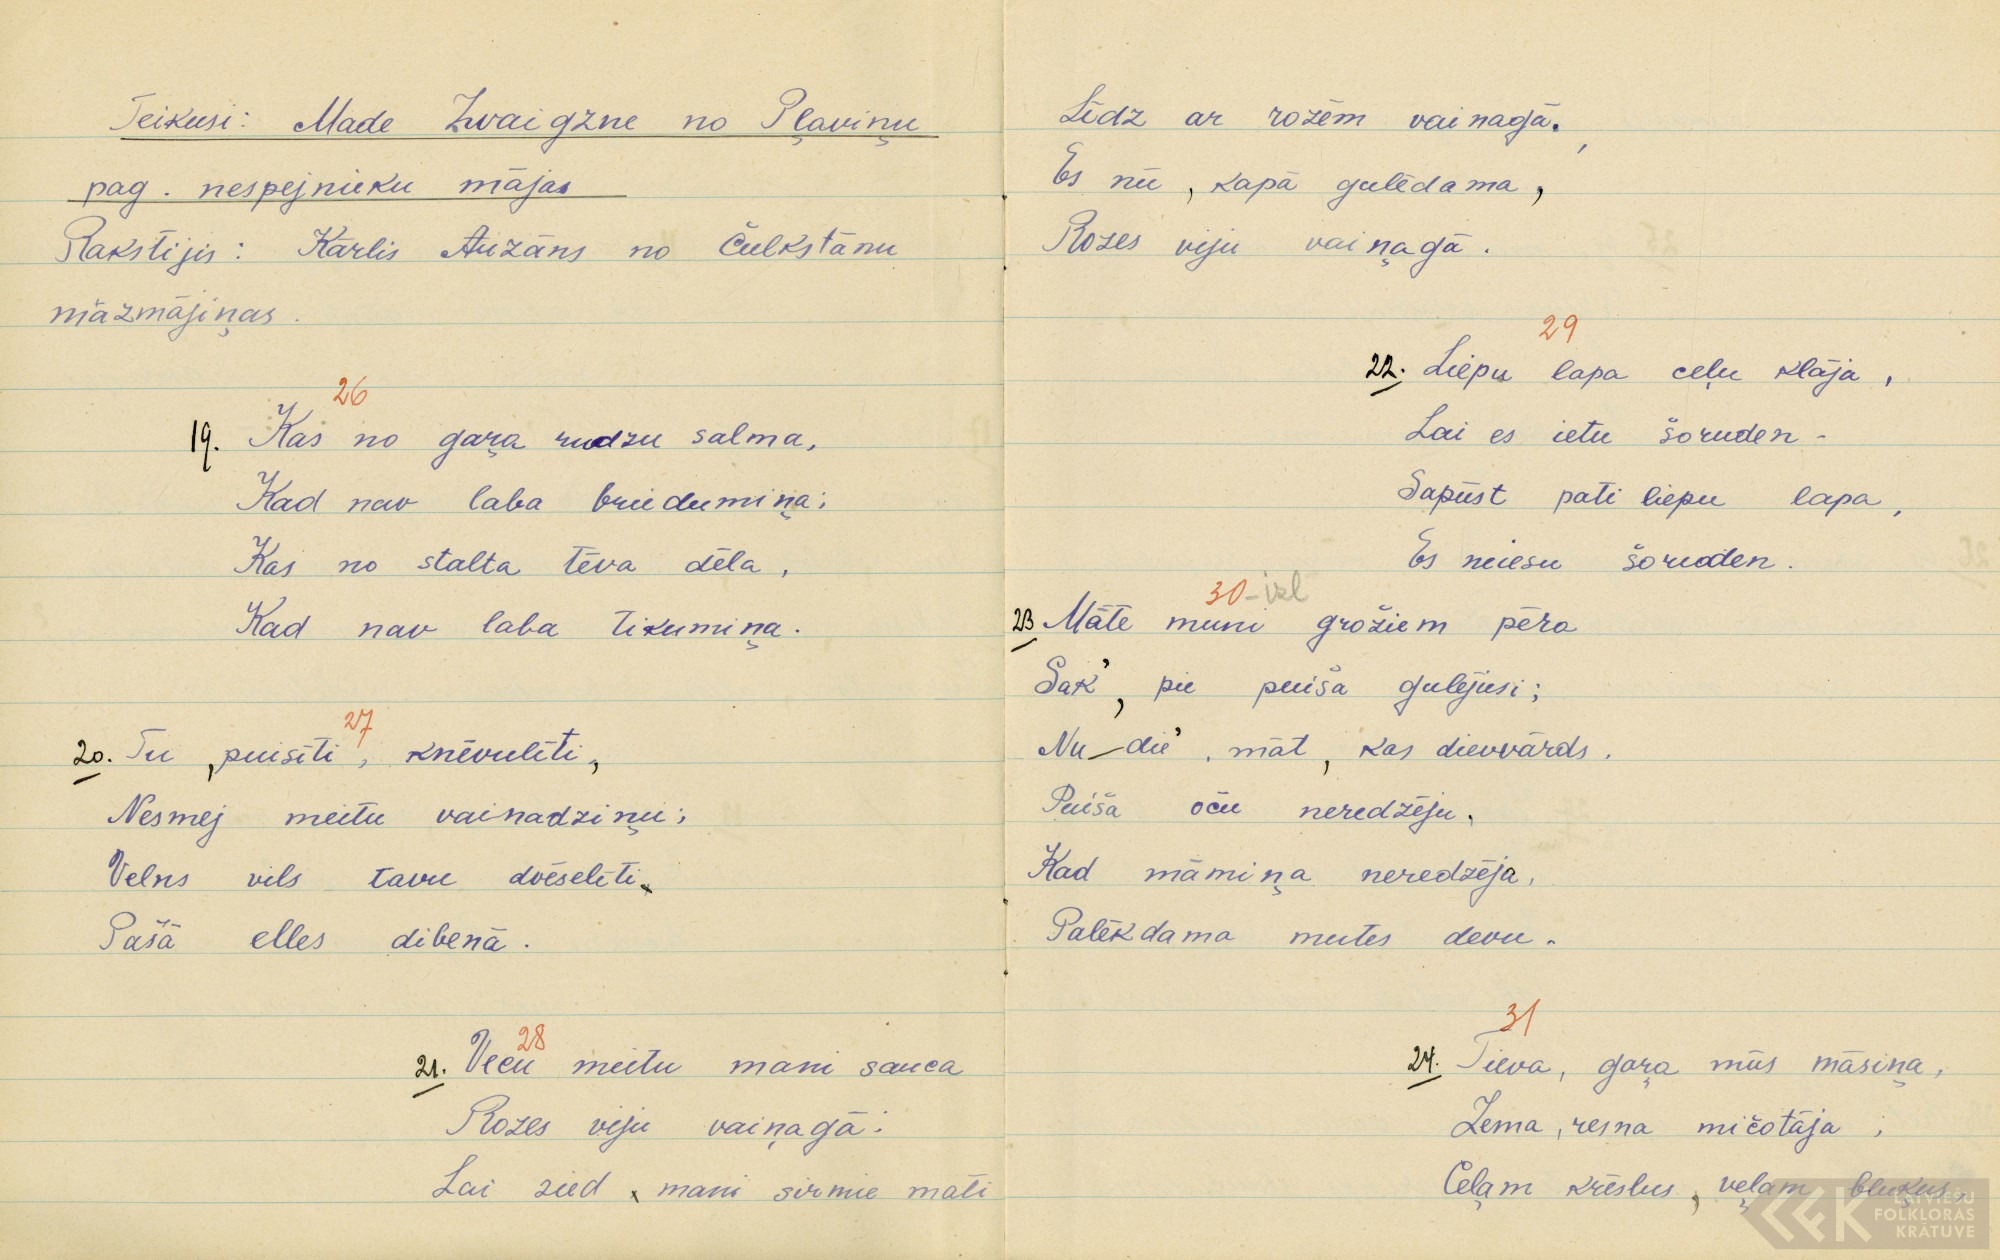 Teikusi: Made Zvaigzne no Pļaviņu
pag. nespejnieku mājas
Rakstijis: Kārlis Auzāns no Čulkstānu
māzmājiņas.
26
19. Kas no gaŗa rudzu salma,
Kad nav laba briedumiņa;
Kas no stalta tēva dēla,
Kad nav laba tikumiņa.
27
20. Tu, puisīti, knēvulīti,
Nesmej meitu vainadziņu;
Velns vils tavu dvēselīti
Pašā elles dibenā.
28
21. Vecu meitu mani sauca
Rozes viju vaiņagā:
Lai zied, mani sirmie mati
Līdz ar rozēm vainagā,
Es nū, kapā gulēdama,
Rozes viju vaiņagā.
29
22. Liepu lapa ceļu klāja,
Lai es ietu šoruden -
Sapūst pati liepu lapa,
Es neiesu šoruden.
30 - izl
23 Māte muni grožiem pēra
Sak', pie puiša gulējusi;
Nu-die', māt, kas dievvārds.
Puiša oču neredzēju,
Kad māmiņa neredzēja,
Palēkdama mutes devu.
31
24. Tieva, gaŗa mūs māsiņa,
Zema, resna mičotāja;
Ceļam krēslus, veļam bluķus,
LATVIEŠU
FOLKLORAS
KRĀTUVE